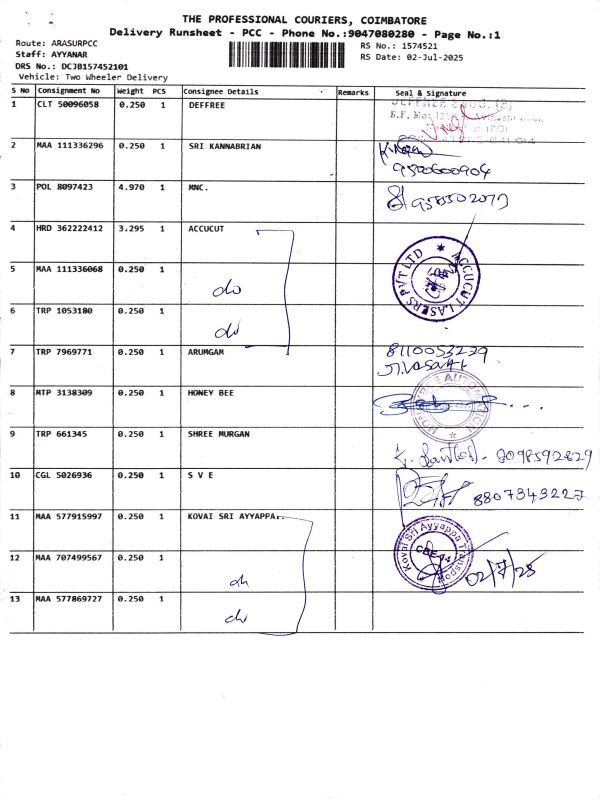 THE PROFESSIONAL COURIERS, COIMBATORE
Delivery Runsheet - PCC - Phone No.:9047080280 - Page No.:1
Route: ARASURPCC
Staff: AYYANAR
DRS No.: DCJB157452101
Vehicle: Two Wheeler Delivery
RS No.: 1574521
RS Date: 02-Jul-2025
S No Consignment No Weight PCS Consignee Details Remarks Seal & Signature
1 CLT 50096058 0.250 1 DEFFREE
2 MAA 111336296 0.250 1 SRI KANNABRIAN
9500600904
3 POL 8097423 4.970 1 MNC.
4 HRD 362222412 3.295 1 ACCUCUT
ACCUCUT LASERS PVT LTD
5 MAA 111336068 0.250 1
do
6 TRP 1053180 0.250 1
do
7 TRP 7969771 0.250 1 ARUMGAM
8110053229
8 MTP 3138309 0.250 1 HONEY BEE
9 TRP 661345 0.250 1 SHREE MURGAN
8098592829
10 CGL 5026936 0.250 1 S V E
8807343227
11 MAA 577915997 0.250 1 KOVAI SRI AYYAPPA.
Kovai Sri Ayyappa
12 MAA 707499567 0.250 1
do
02/7/25
13 MAA 577869727 0.250 1
do